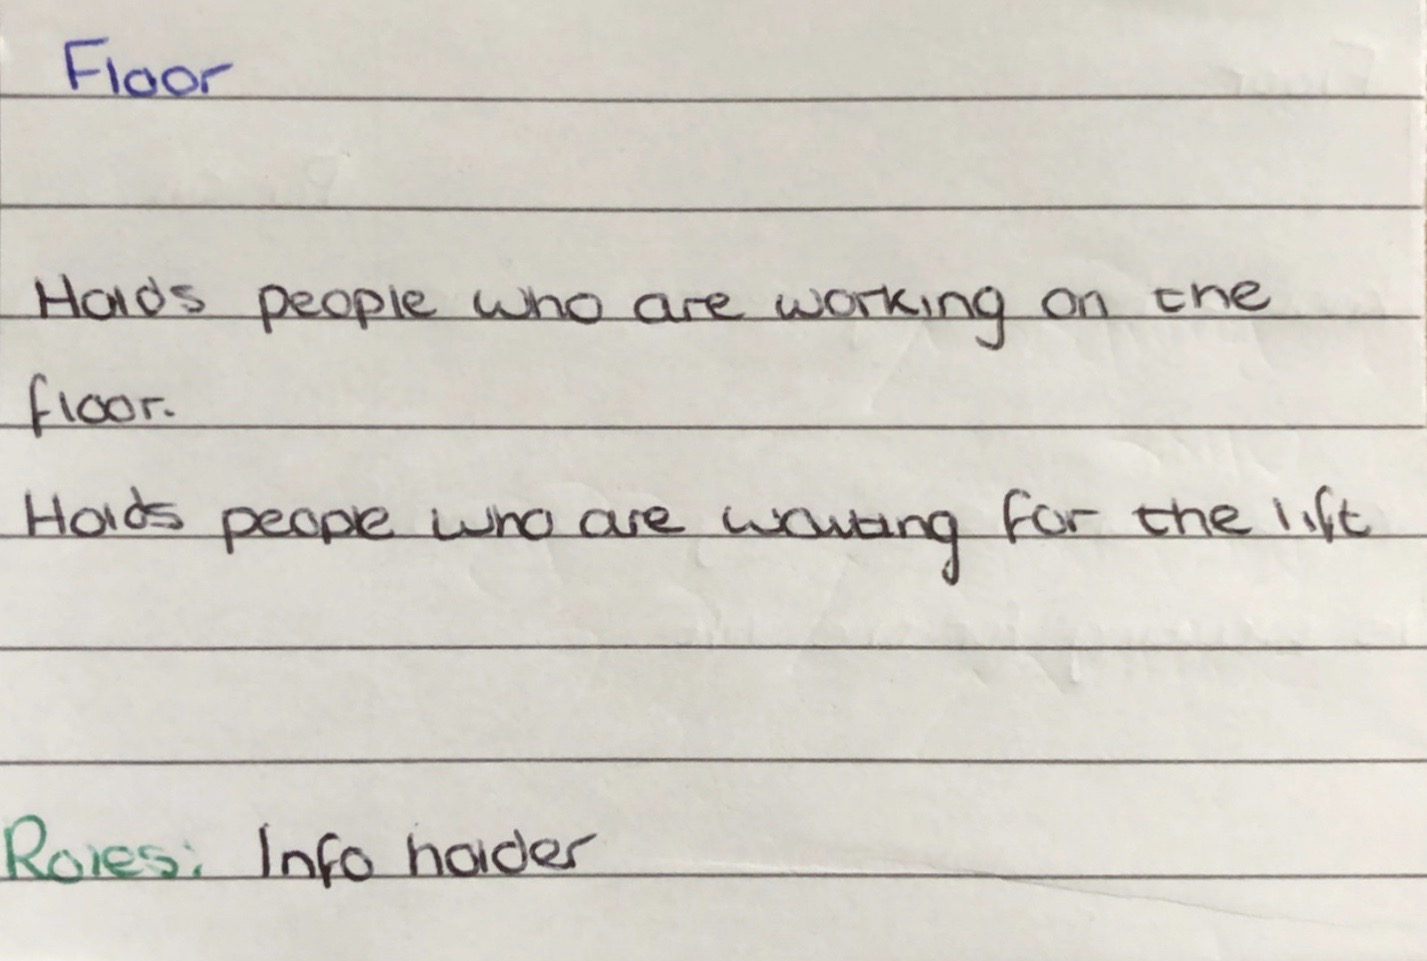 Floor
Holds people who are working on the
floor.
Holds people who are waiting for the lift
Roles: Info holder